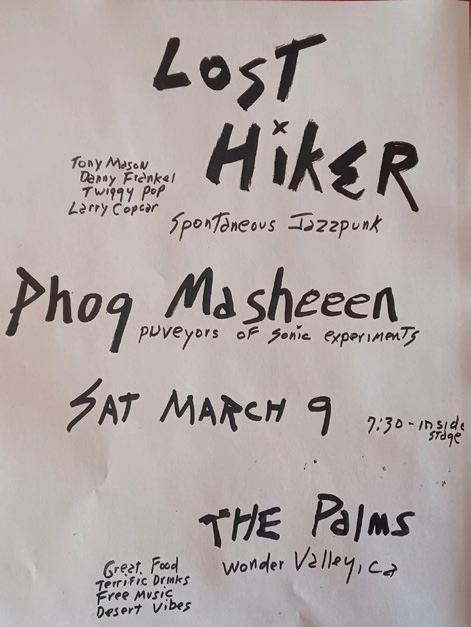 LOST
HiKER
Tony Mason
Danny Frankel
Twiggy Pop
Larry Copcar
Spontaneous Jazzpunk
Phog Masheeen
puveyors of Sonic experiments
SAT MARCH 9
7:30 - inside
stage
THE Palms
Wonder Valley, ca
Great Food
Terrific Drinks
Free Music
Desert Vibes